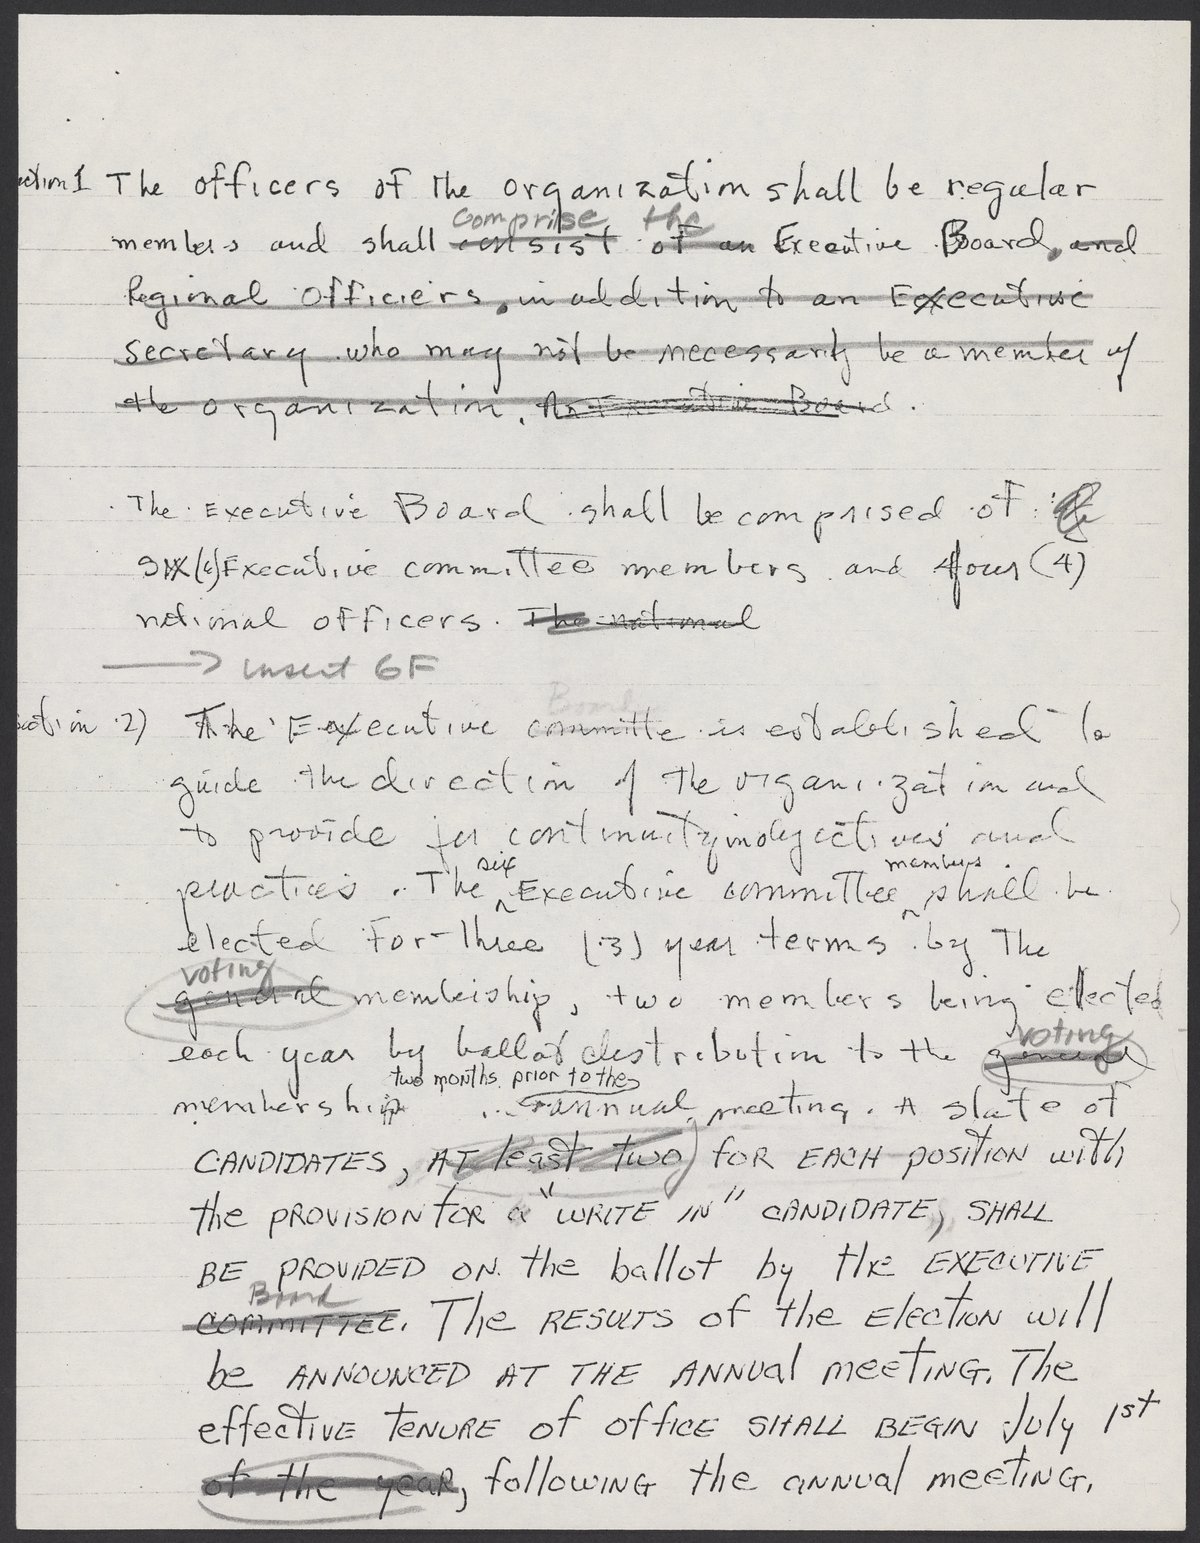 ection 1 The officers of the organization shall be regular
comprise the
members and shall consist of an Executive Board, and
Regional Officiers, in addition to an Executive
secretary who may not be necessarily be a member of
the organization. An Executive Board.
The Executive Board shall be comprised of :
six (6) Executive committee members and four (4)
national officers. The national
→ insert 6F
Board
ection 2) The Executive committe is established to
guide the direction of the organization and
to provide for continuity in objectives and
six members
practices. The ^ Executive committee ^ shall be
elected for three (3) year terms by The
voting
general membership, two members being elected
voting
each year by ballot distribution to the general
two months prior to the
membership annual meeting. A slate of
CANDIDATES, AT least two, FOR EACH POSITION with
the PROVISION for a "WRITE IN" CANDIDATE, SHALL
BE PROVIDED ON the ballot by the EXECUTIVE
Board
COMMITTEE. The RESULTS of the Election will
be ANNOUNCED AT THE ANNUAL meeting. The
effective TENURE of office SHALL BEGIN July 1st
of the year, following the annual meeting.